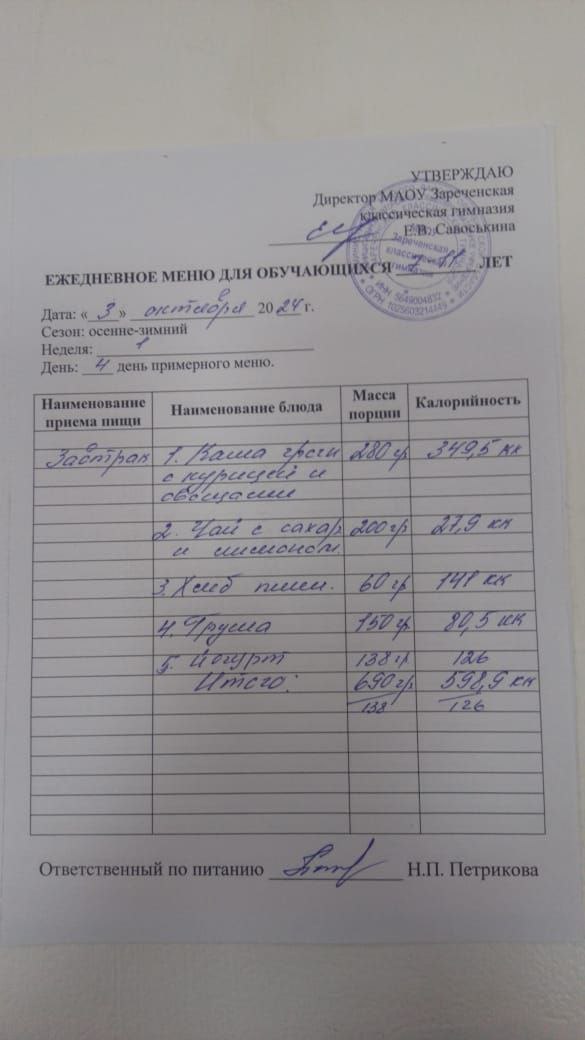 УТВЕРЖДАЮ
Директор МАОУ Зареченская
классическая гимназия
Е.В. Савоськина
ЕЖЕДНЕВНОЕ МЕНЮ ДЛЯ ОБУЧАЮЩИХСЯ 7-11 ЛЕТ
Дата: « 3 » октября 20 24 г.
Сезон: осенне-зимний
Неделя: 1
День: 4 день примерного меню.
Наименование приема пищи Наименование блюда Масса порции Калорийность
Завтрак 1. Каша гречн 280 гр 349,5 кк
с курицей и
овощами
2. Чай с сахар 200 гр 27,9 кк
и лимоном
3. Хлеб пшен. 60 гр 141 кк
4. Груша 150 гр 80,5 кк
5. Йогурт 138 гр 126
Итого: 690 гр 598,9 кк
138 126
Ответственный по питанию Н.П. Петрикова
Зареченская
классическая
гимназия
ИНН 5649004832
ОГРН 1025603214449